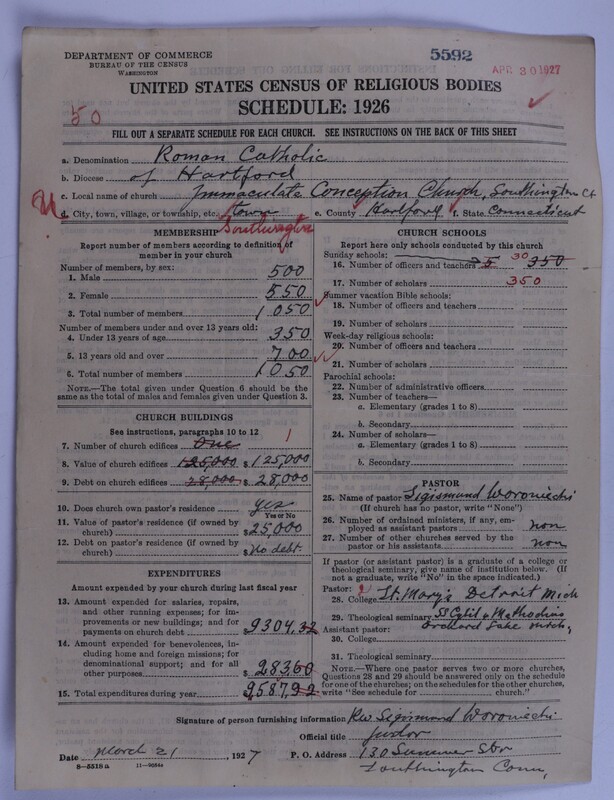 5592
APR 30 1927
DEPARTMENT OF COMMERCE
BUREAU OF THE CENSUS
WASHINGTON
UNITED STATES CENSUS OF RELIGIOUS BODIES
SCHEDULE: 1926
50
FILL OUT A SEPARATE SCHEDULE FOR EACH CHURCH. SEE INSTRUCTIONS ON THE BACK OF THIS SHEET
a. Denomination Roman Catholic
b. Diocese of Hartford
c. Local name of church Immaculate Conception Church, Southington Ct
d. City, town, village, or township, etc. town e. County Hartford f. State Connecticut
Southington
MEMBERSHIP
Report number of members according to definition of
member in your church
Number of members, by sex:
1. Male 500
2. Female 550
3. Total number of members 1050
Number of members under and over 13 years old:
4. Under 13 years of age 350
5. 13 years old and over 700
6. Total number of members 1050
NOTE.—The total given under Question 6 should be the
same as the total of males and females given under Question 3.
CHURCH BUILDINGS
See instructions, paragraphs 10 to 12
7. Number of church edifices One 1
8. Value of church edifices 125,000 $ 125,000
9. Debt on church edifices 28,000 $ 28,000
10. Does church own pastor's residence? yes
Yes or No
11. Value of pastor's residence (if owned by
church) $ 25000
12. Debt on pastor's residence (if owned by
church) $ No debt
EXPENDITURES
Amount expended by church during last fiscal year
13. Amount expended for salaries, repairs,
and other running expenses; for im-
provements or new buildings; and for
payments on church debt $ 9304,32
14. Amount expended for benevolences, in-
cluding home and foreign missions; for
denominational support; and for all
other purposes $ 283,60
15. Total expenditures during year $ 9587,92
CHURCH SCHOOLS
Report here only schools conducted by this church
Sunday schools:
16. Number of officers and teachers 5 30 350
17. Number of scholars 350
Summer vacation Bible schools:
18. Number of officers and teachers
19. Number of scholars
Week-day religious schools:
20. Number of officers and teachers
21. Number of scholars
Parochial schools:
22. Number of administrative officers
23. Number of teachers—
a. Elementary (grades 1 to 8)
b. Secondary
24. Number of scholars—
a. Elementary (grades 1 to 8)
b. Secondary
PASTOR
25. Name of pastor Sigismund Woroniecki
(If church has no pastor, write "None")
26. Number of ordained ministers, if any, em-
ployed as assistant pastors non
27. Number of other churches served by the
pastor or his assistants non
If pastor (or assistant pastor) is a graduate of a college or
theological seminary, give name of institution below. (If
not a graduate, write "No" in the space indicated.)
Pastor:
28. College St. Mary's Detroit Mich
29. Theological seminary SS Cyril & Methodius
Assistant pastor: Orchard Lake Mich,
30. College
31. Theological seminary
NOTE.—Where one pastor serves two or more churches,
Questions 28 and 29 should be answered only on the schedule
for one of the churches; on the schedules for the other churches,
write "See schedule for church."
Signature of person furnishing information Rev Sigismund Woroniecki
Official title
Date March 21, 1927 P. O. Address 130 Summer Str
8—5518a 11—9084a Southington Conn,